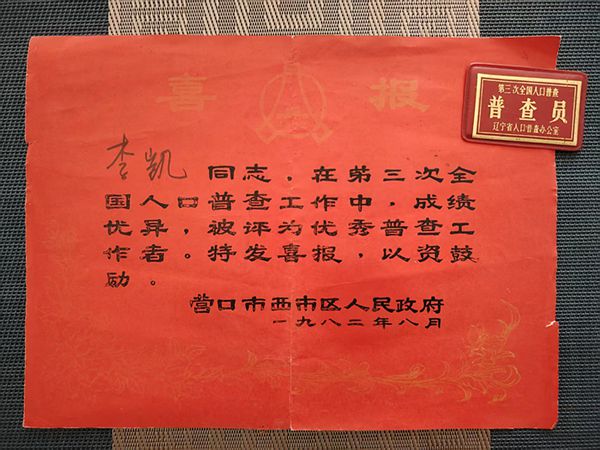 喜报
第三次全国人口普查
普查员
辽宁省人口普查办公室
李凯 同志，在第三次全
国人口普查工作中，成绩
优异，被评为优秀普查工
作者。特发喜报，以资鼓
励。
营口市西市区人民政府
一九八二年八月